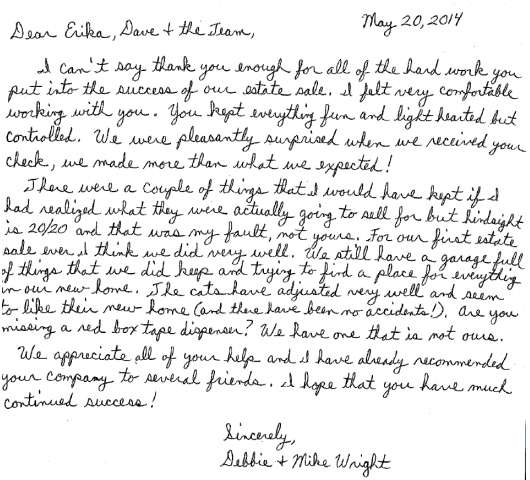 May 20, 2014
Dear Erika, Dave + the Team,
I can't say thank you enough for all of the hard work you
put into the success of our estate sale. I felt very comfortable
working with you. You kept everything fun and light hearted but
controlled. We were pleasantly surprised when we received your
check, we made more than what we expected!
There were a couple of things that I would have kept if I
had realized what they were actually going to sell for but hindsight
is 20/20 and that was my fault, not yours. For our first estate
sale ever I think we did very well. We still have a garage full
of things that we did keep and trying to find a place for everything
in our new home. The cats have adjusted very well and seem
to like their new home (and there have been no accidents!). Are you
missing a red box tape dispenser? We have one that is not ours.
We appreciate all of your help and I have already recommended
your company to several friends. I hope that you have much
continued success!
Sincerely,
Debbie + Mike Wright